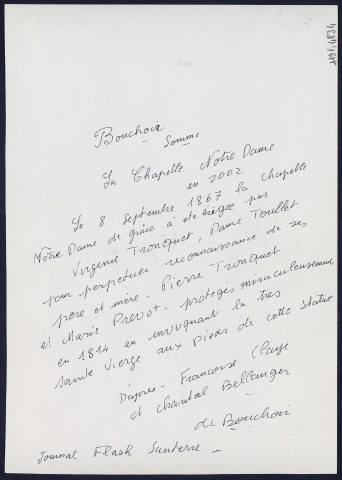 119 F 4834
Bouchoir
Somme
La Chapelle Notre Dame
en 2002
Le 8 Septembre 1867 la chapelle
Notre Dame de grâce à eté érigée par
Virginie Tronquet, Dame Toullet
pour perpetuer reconnaissance de ses
père et mère - Pierre Tronquet
et Marie Prevot - protegés miraculeusement
en 1814 en invoquant la très
Sainte Vierge aux Pieds de cette statue
D'après - Francoise Claye
et chantal Bellanger
de Bouchoir
Journal Flash Santerre -